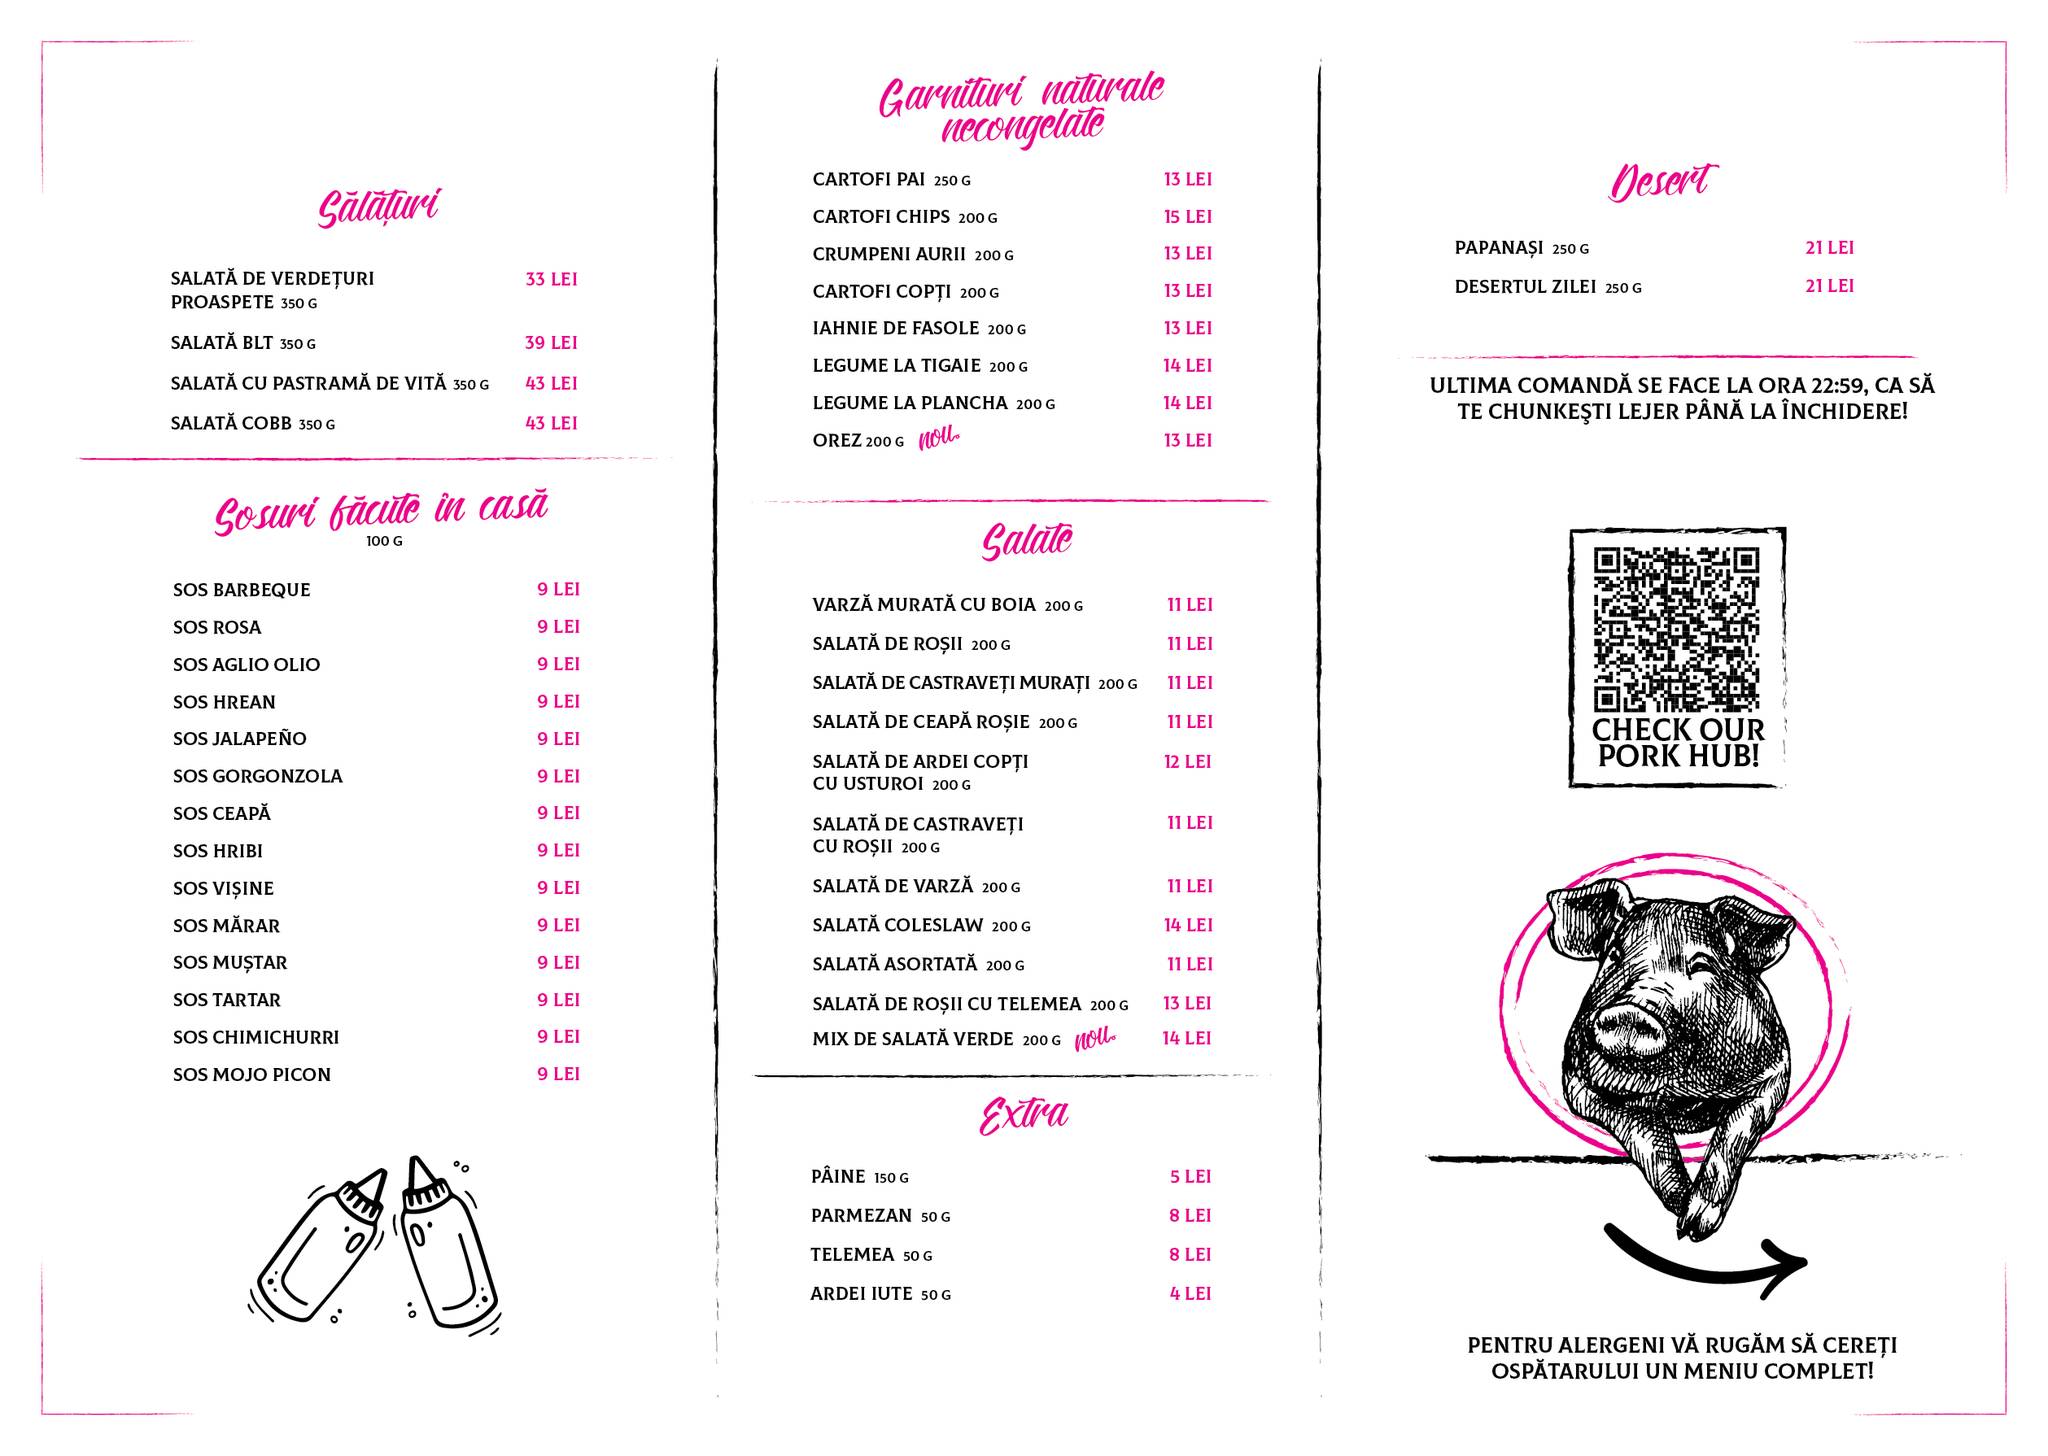 Sălățuri
SALATĂ DE VERDEȚURI 33 LEI
PROASPETE 350 G
SALATĂ BLT 350 G 39 LEI
SALATĂ CU PASTRAMĂ DE VITĂ 350 G 43 LEI
SALATĂ COBB 350 G 43 LEI
Sosuri făcute în casă
100 G
SOS BARBEQUE 9 LEI
SOS ROSA 9 LEI
SOS AGLIO OLIO 9 LEI
SOS HREAN 9 LEI
SOS JALAPEÑO 9 LEI
SOS GORGONZOLA 9 LEI
SOS CEAPĂ 9 LEI
SOS HRIBI 9 LEI
SOS VIȘINE 9 LEI
SOS MĂRAR 9 LEI
SOS MUȘTAR 9 LEI
SOS TARTAR 9 LEI
SOS CHIMICHURRI 9 LEI
SOS MOJO PICON 9 LEI
Garnituri naturale
necongelate
CARTOFI PAI 250 G 13 LEI
CARTOFI CHIPS 200 G 15 LEI
CRUMPENI AURII 200 G 13 LEI
CARTOFI COPȚI 200 G 13 LEI
IAHNIE DE FASOLE 200 G 13 LEI
LEGUME LA TIGAIE 200 G 14 LEI
LEGUME LA PLANCHA 200 G 14 LEI
OREZ 200 G nou. 13 LEI
Salate
VARZĂ MURATĂ CU BOIA 200 G 11 LEI
SALATĂ DE ROȘII 200 G 11 LEI
SALATĂ DE CASTRAVEȚI MURAȚI 200 G 11 LEI
SALATĂ DE CEAPĂ ROȘIE 200 G 11 LEI
SALATĂ DE ARDEI COPȚI 12 LEI
CU USTUROI 200 G
SALATĂ DE CASTRAVEȚI 11 LEI
CU ROȘII 200 G
SALATĂ DE VARZĂ 200 G 11 LEI
SALATĂ COLESLAW 200 G 14 LEI
SALATĂ ASORTATĂ 200 G 11 LEI
SALATĂ DE ROȘII CU TELEMEA 200 G 13 LEI
MIX DE SALATĂ VERDE 200 G nou. 14 LEI
Extra
PÂINE 150 G 5 LEI
PARMEZAN 50 G 8 LEI
TELEMEA 50 G 8 LEI
ARDEI IUTE 50 G 4 LEI
Desert
PAPANAȘI 250 G 21 LEI
DESERTUL ZILEI 250 G 21 LEI
ULTIMA COMANDĂ SE FACE LA ORA 22:59, CA SĂ
TE CHUNKEŞTI LEJER PÂNĂ LA ÎNCHIDERE!
CHECK OUR
PORK HUB!
PENTRU ALERGENI VĂ RUGĂM SĂ CEREȚI
OSPĂTARULUI UN MENIU COMPLET!